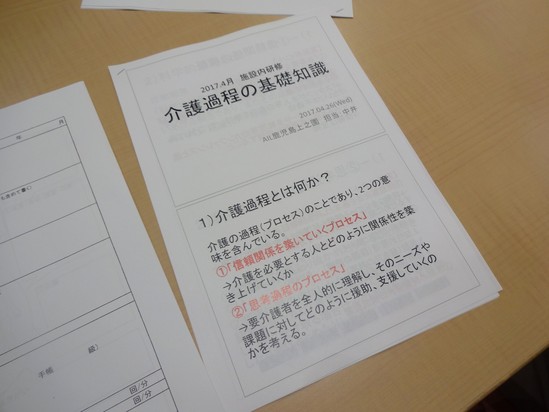 2017.4月 施設内研修
介護過程の基礎知識
2017.04.26(Wed)
AIL鹿児島上之園 担当 中井
1)介護過程とは何か?
介護の過程(プロセス)のことであり、2つの意
味を含んでいる。
①「信頼関係を築いていくプロセス」
→介護を必要とする人とどのように関係性を築
き上げていくか
②「思考過程のプロセス」
→要介護者を全人的に理解し、そのニーズや
課題に対してどのように援助、支援していくの
かを考える。
年 月
手帳 級)
回/分
回/分